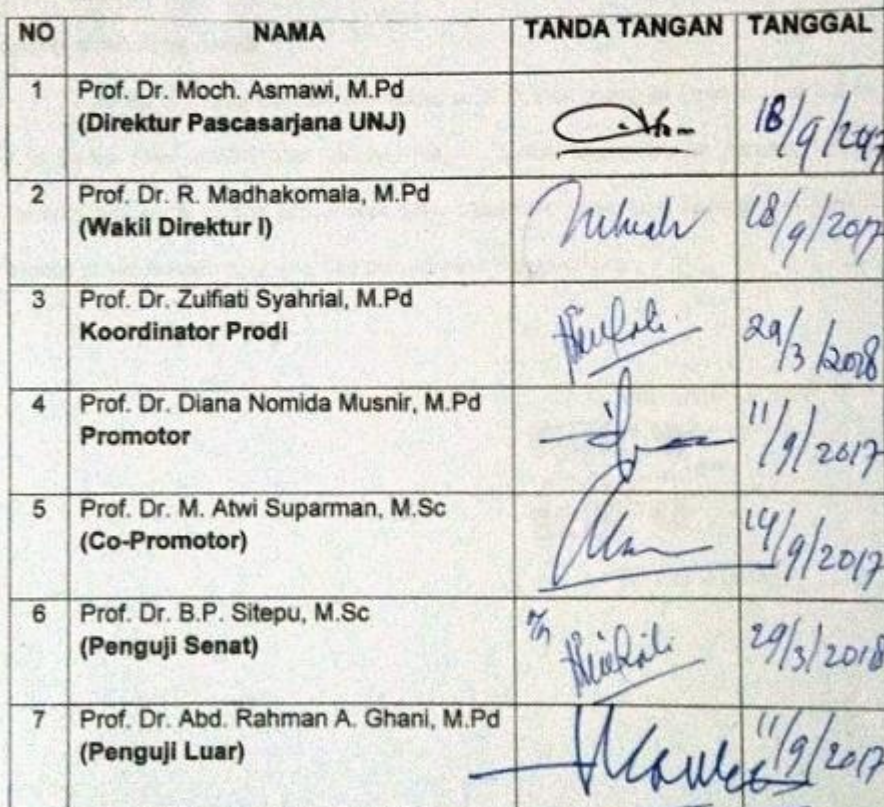 NO NAMA TANDA TANGAN TANGGAL
1 Prof. Dr. Moch. Asmawi, M.Pd
(Direktur Pascasarjana UNJ) 18/9/2017
2 Prof. Dr. R. Madhakomala, M.Pd
(Wakil Direktur I) 18/9/2017
3 Prof. Dr. Zulfiati Syahrial, M.Pd
Koordinator Prodi 29/3/2018
4 Prof. Dr. Diana Nomida Musnir, M.Pd
Promotor 11/9/2017
5 Prof. Dr. M. Atwi Suparman, M.Sc
(Co-Promotor) 14/9/2017
6 Prof. Dr. B.P. Sitepu, M.Sc
(Penguji Senat) 29/3/2018
7 Prof. Dr. Abd. Rahman A. Ghani, M.Pd
(Penguji Luar) 11/9/2017